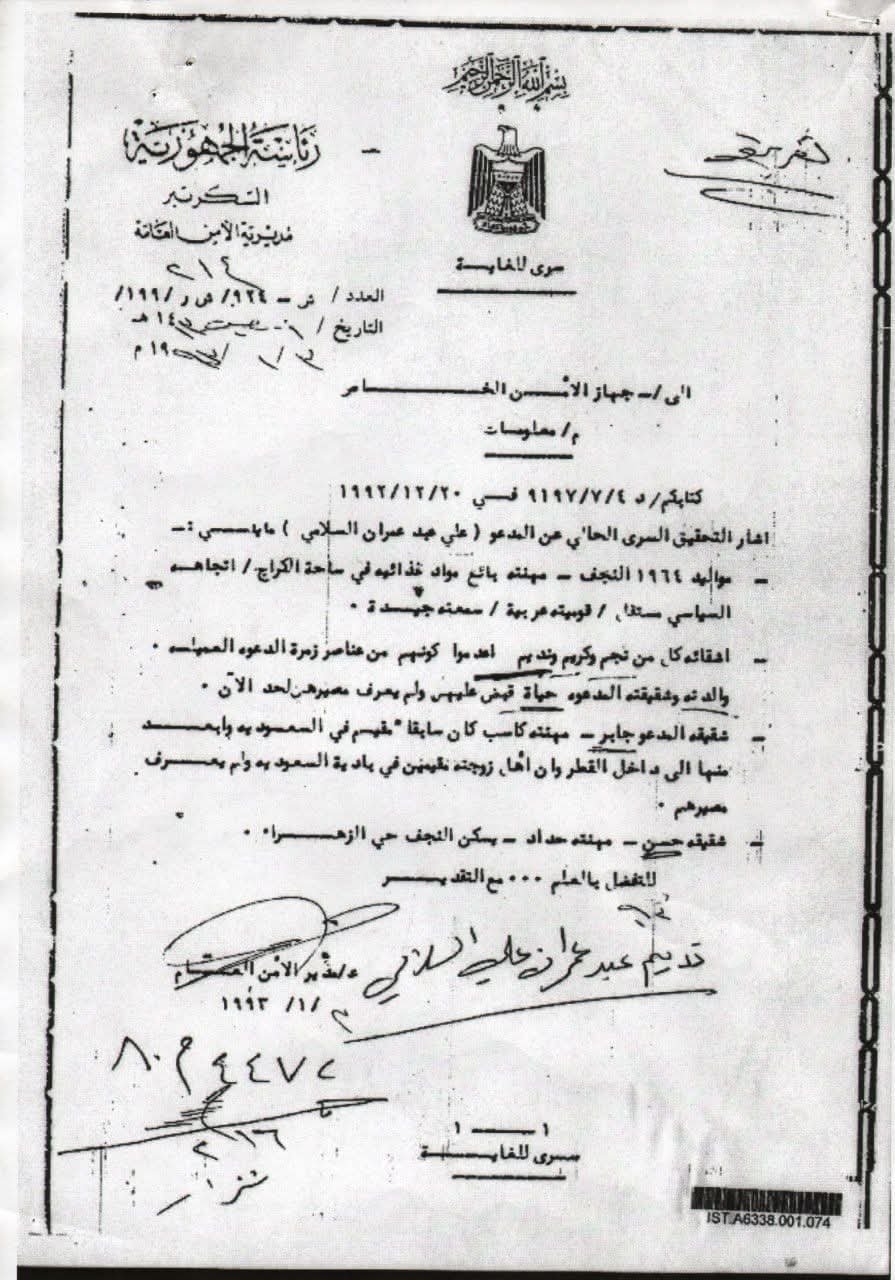 بسم الله الرحمن الرحيم
رئاسة الجمهورية
السكرتير
مديرية الأمن العامة
سرى للغايـــة
٢١٤
العدد / ش – ٩٢٤/ ش ر /١٩٩/
التاريخ / ١٤ هـ
/ ١ / ١٩ م
الى /– جهاز الامـــن الخـــاص
م/ معلومات
كتابكم/ د ٩١٩٧/٧/٤ فــي ١٩٩٢/١٢/٢٠
اشار التحقيق السرى الحالي عن المدعو ( علي عبد عمران السلامي ) مايلــــي :–
– مواليد ١٩٦٤ النجف – مهنته بائع مواد غذائيه في ساحة الكراج / اتجاهـــه
السياسي مستقل / قوميته عربية / سمعته جيـــدة ٠
– اشقائه كل من نجم وكريم ونديم اعدموا كونهم من عناصر زمرة الدعوه العميلــه ٠
والدته وشقيقته المدعوه حياة قبض عليهن ولم يعرف مصيرهن لحد الآن ٠
– شقيقه المدعو جابر – مهنته كاسب كان سابقا" مقيم في السعوديه وابعـــد
منها الى داخل القطر وان أهل زوجته مقيمين في بادية السعوديه ولم يعـــرف
مصيرهم ٠
– شقيقه حسن – مهنته حداد – يسكن النجف حي الزهـــراء ٠
للتفضل بالعلم ٠٠٠ مع التقديـــر
نديم عبد عمران علي السلامي
ع/مدير الأمن العـــام
٢ /١/ ١٩٩٣
٨٠ م ٤٤٧٢
٢١٦
نزار
١ ـــــ ١
سرى للغايـــة
IST.A6338.001.074